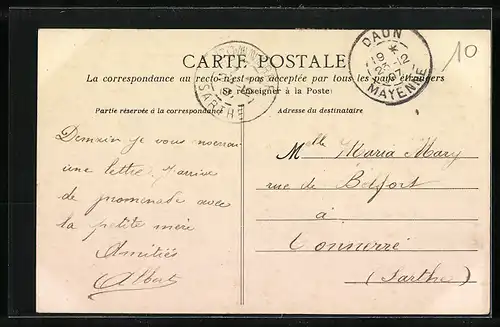 CARTE POSTALE
La correspondance au recto n'est pas acceptée par tous les pays étrangers
(Se renseigner à la Poste)
Partie réservée à la correspondance
Adresse du destinataire
DAUN
19 *
23-12
07
MAYENNE
SARTHE
10
Demain je vous
une lettre. J'arrive
de promenade avec
la petite mère
Amitiés
Albert
Melle Maria Mary
rue de Belfort
à
Connerré
(Sarthe)